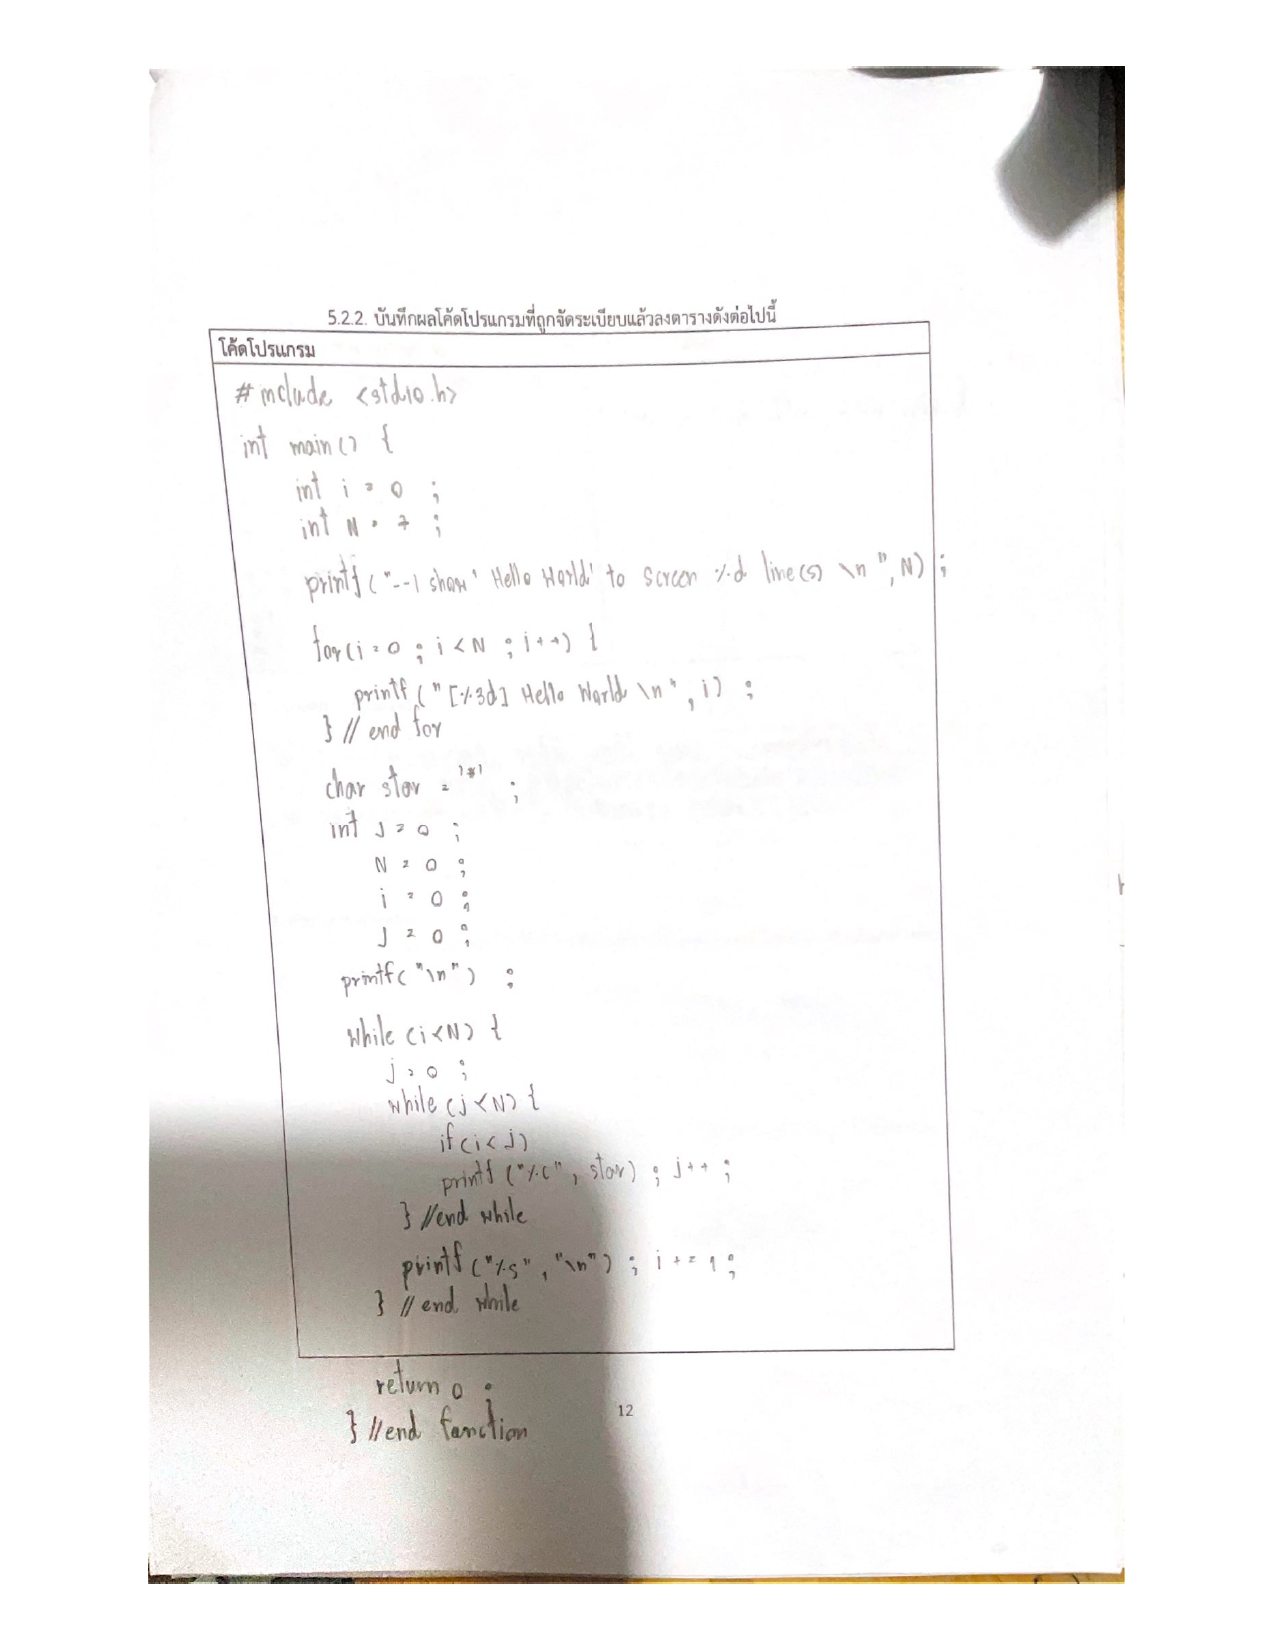 5.2.2. บันทึกผลโค้ดโปรแกรมที่ถูกจัดระเบียบแล้วลงตารางดังต่อไปนี้
โค้ดโปรแกรม
#include <stdio.h>
int main() {
int i = 0 ;
int N = 7 ;
printf("--| show 'Hello World' to screen %d line(s) \n", N) ;
for(i = 0 ; i < N ; i++) {
printf("[%3d] Hello World \n", i) ;
} // end for
char star = '*' ;
int J = 0 ;
N = 0 ;
i = 0 ;
J = 0 ;
printf("\n") ;
while (i<N) {
j = 0 ;
while (j<N) {
if(i<j)
printf("%c", star) ; j++ ;
} //end while
printf("%s", "\n") ; i += 1 ;
} // end while
return 0 ;
12
} //end function